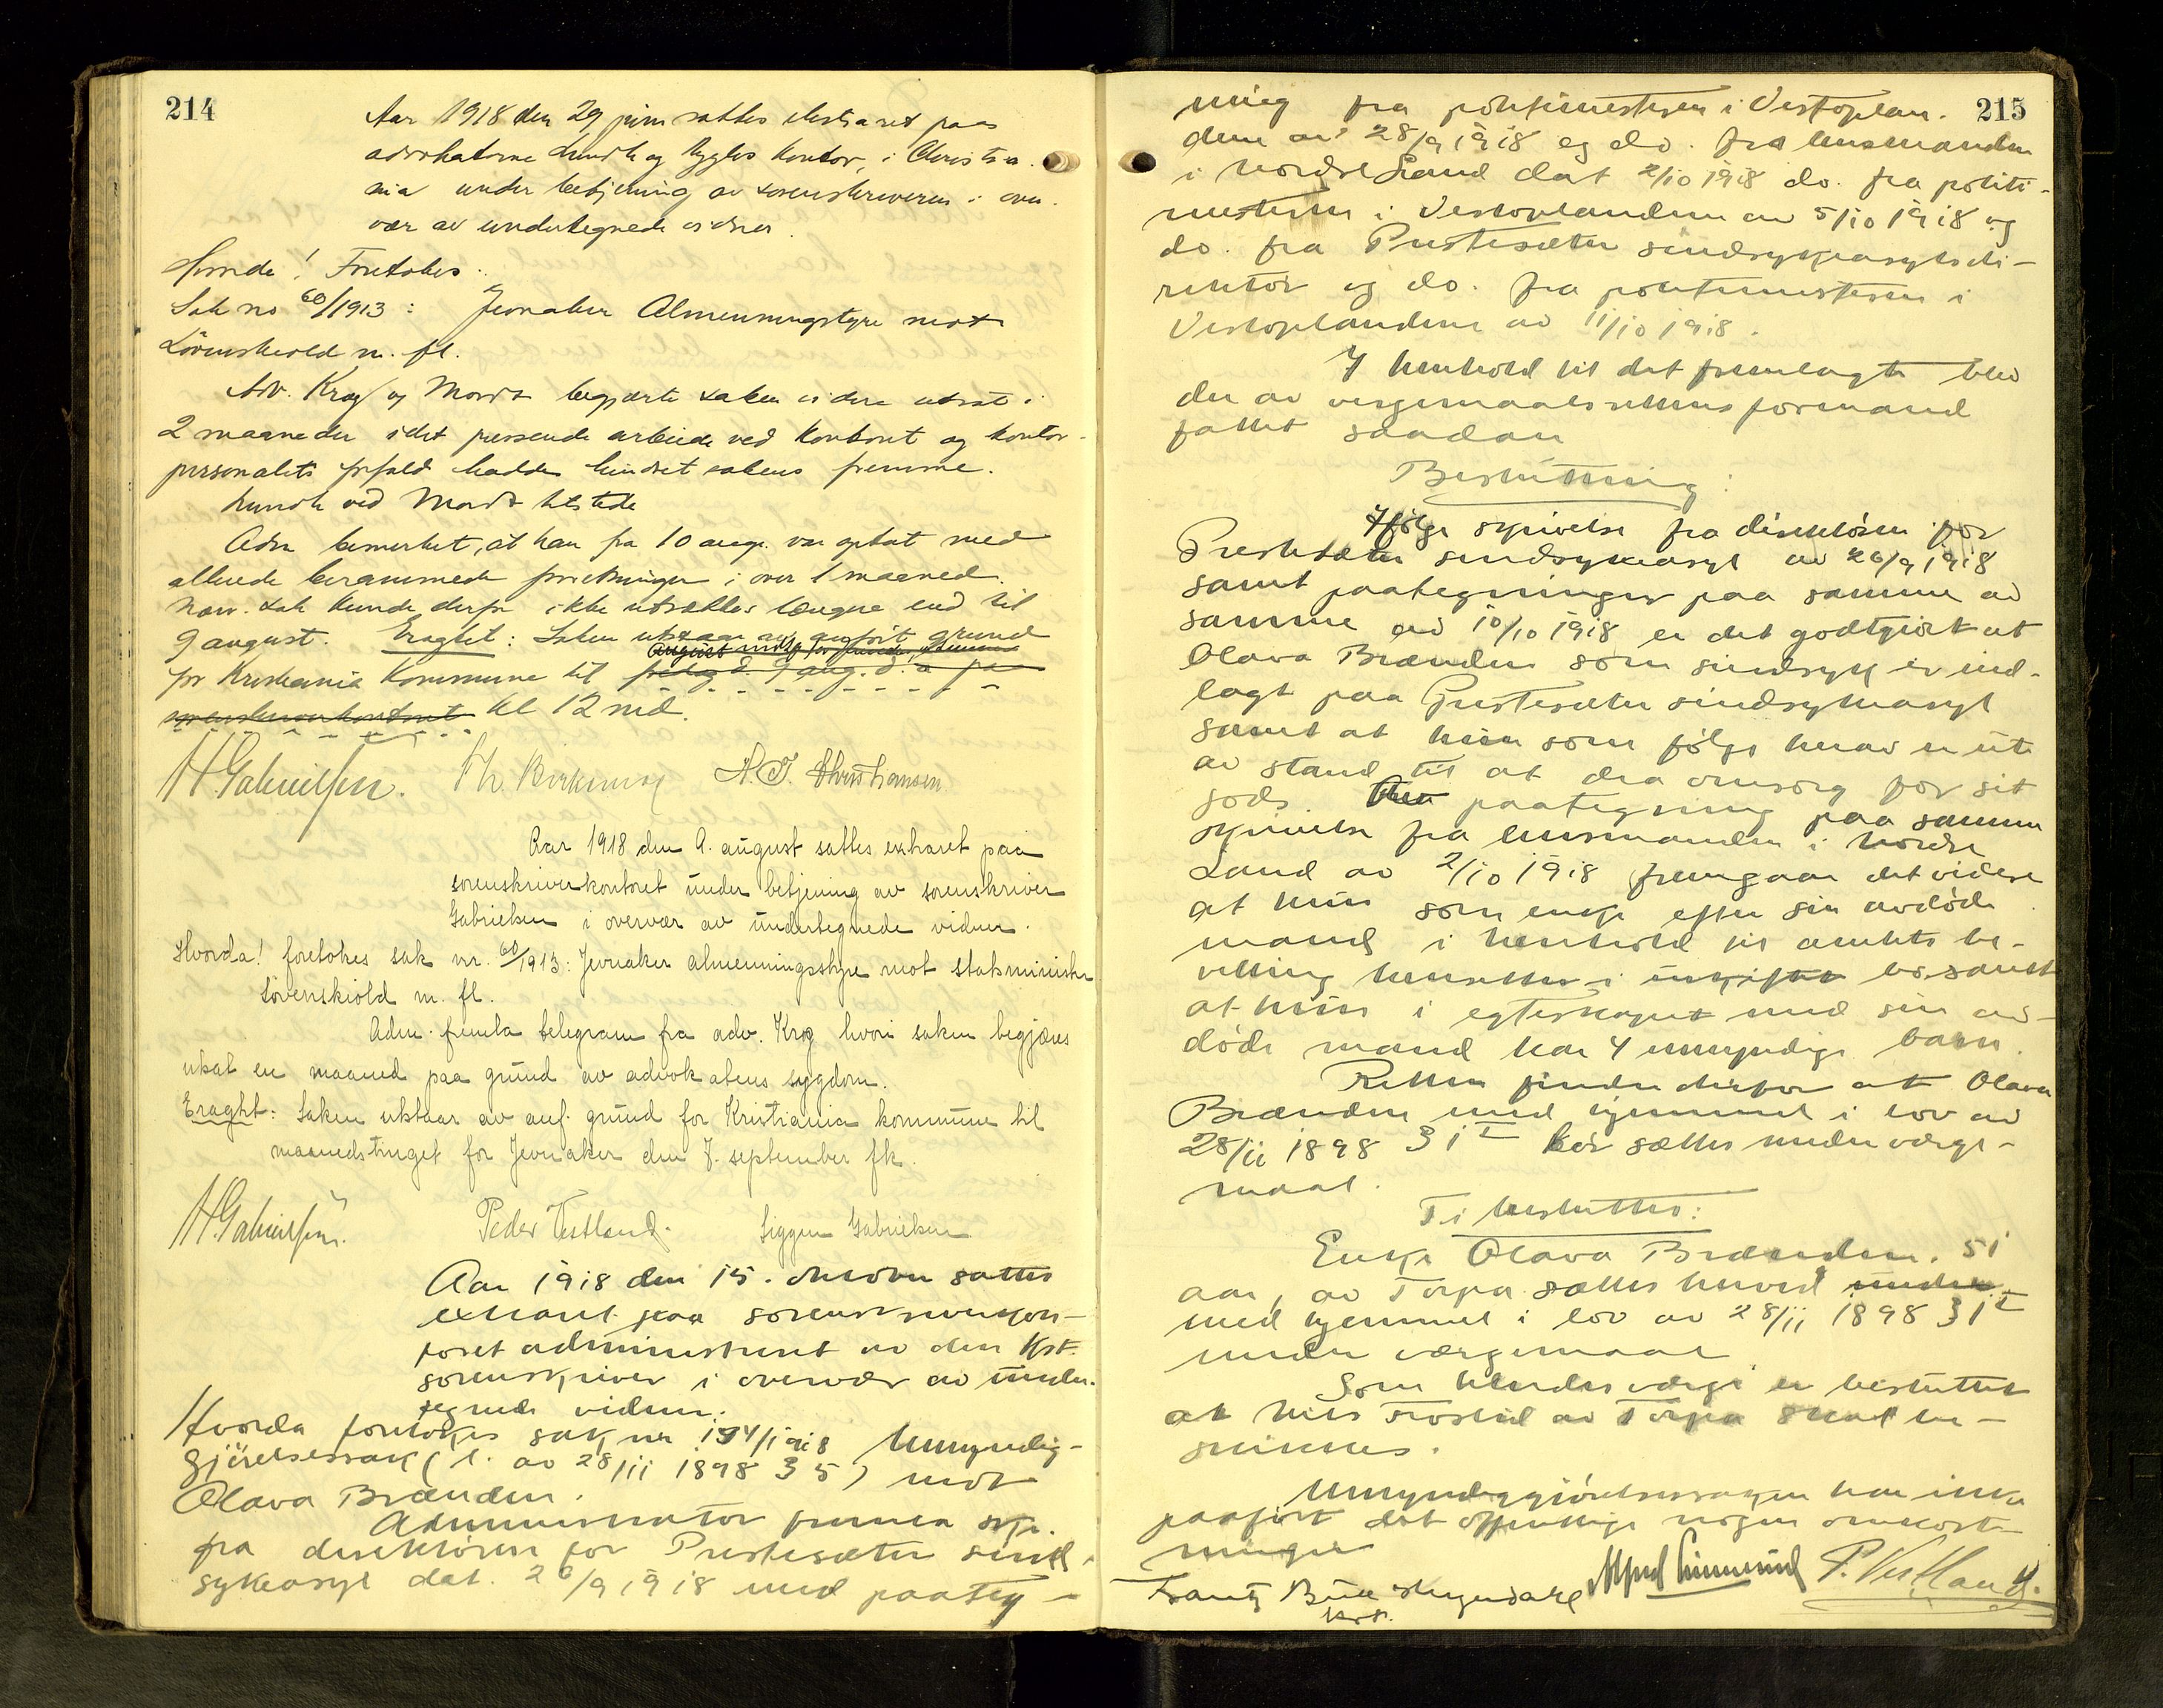 214
Aar 1918 den 29 juni sattes ekstraret paa
advokaterne Lundh og Rygles kontor, i Christia-
nia under betjening av sorenskriveren i over-
vær av undertegnede vidner.
Hvorda! Foretokes:
Sak no 60/1913: Jevnaker Almenningstyre mot
Løvenskiold m. fl.
Adv. Krag og Mordt begjærte saken videre utsat i
2 maaneder idet pressende arbeide ved kontoret og kontor-
personalets forfald hadde hindret sakens fremme.
Lundh ved Mordt tilstede
Adm bemerket, at han fra 10 aug. var optat med
allerede berammede forretninger i over 1 maaned.
Nærv. sak kunde derfor ikke utsættes længere end til
9 august. Eragtet: Saken utstaar av anført grund
for Kristiania Kommune til
sorenskriverkontoret kl 12 md.
H Gabrielsen. Th. Birkeness A. T. Christiansen
Aar 1918 den 9. august sattes extraret paa
sorenskriverkontoret under betjening av sorenskriver
Gabrielsen i overvær av undertegnede vidner.
Hvorda! foretokes sak nr. 60/1913: Jevnaker almenningsstyre mot statsminister
Løvenskiold m. fl.
Adm. fremla telegram fra adv. Krag hvori saken begjæres
utsat en maaned paa grund av advokatens sygdom.
Eragtet: Saken utstaar av anf. grund for Kristiania kommune til
maanedstinget for Jevnaker den 7. september fk.
H. Gabrielsen. Peder Vestland. Siggen Gabrielsen
Aar 1918 den 15. oktober sattes
extraret paa sorenskriverkon-
toret administrert av den kst.
sorenskriver i overvær av under-
tegnede vidner.
Hvorda foretokes sak nr 194/1918 Umyndig-
gjørelsessak (l. av 28/11 1898 § 5) mot
Olava Brænden.
Administrator fremla skr.
fra direktøren for Prestesæter sind-
sykeasyl dat. 26/9 1918 med paateg-
215
ning fra politimesteren i Vestoplan-
dene av 28/9 1918 og do. fra lensmanden
i Nordre Land dat 2/10 1918 do. fra politi-
mesteren i Vestoplandene av 5/10 1918 og
do. fra Prestesæter sindsykeasyls di-
rektør og do. fra politimesteren i
Vestoplandene av 11/10 1918.
I henhold til det fremlagte blev
der av vergemaalsrettens formand
fattet saadan
Beslutning:
Ifølge skrivelse fra direktøren for
Prestesæter sindsykeasyl av 26/9 1918
samt paategninger paa samme av
samme av 10/10 1918 er det godtgjort at
Olava Brænden som sindsyk er ind-
lagt paa Prestesæter sindsykeasyl
samt at hun som følge herav er ute
av stand til at dra omsorg for sit
gods. Av paategning paa samme
skrivelse fra lensmanden i Nordre
Land av 2/10 1918 fremgaar det videre
at hun som enke efter sin avdøde
mand i henhold til amtets be-
villing hensitter i uskiftet bo samt
at hun i egteskapet med sin av-
døde mand har 4 umyndige barn.
Retten finder derfor at Olava
Brænden med hjemmel i lov av
28/11 1898 § 1 I bør sættes under værge-
maal.
Ti besluttes:
Enke Olava Brænden, 51
aar, av Torpa sættes herved under
med hjemmel i lov av 28/11 1898 § 1 I
under værgemaal
Som hendes værge er besluttet
at Nils Frøslid av Torpa skal be-
skikkes.
Umyndiggjørelsessaken har ikke
paaført det offentlige nogen omkost-
ninger
Frantz Bue Skyndahl P. Vestland.
kst.